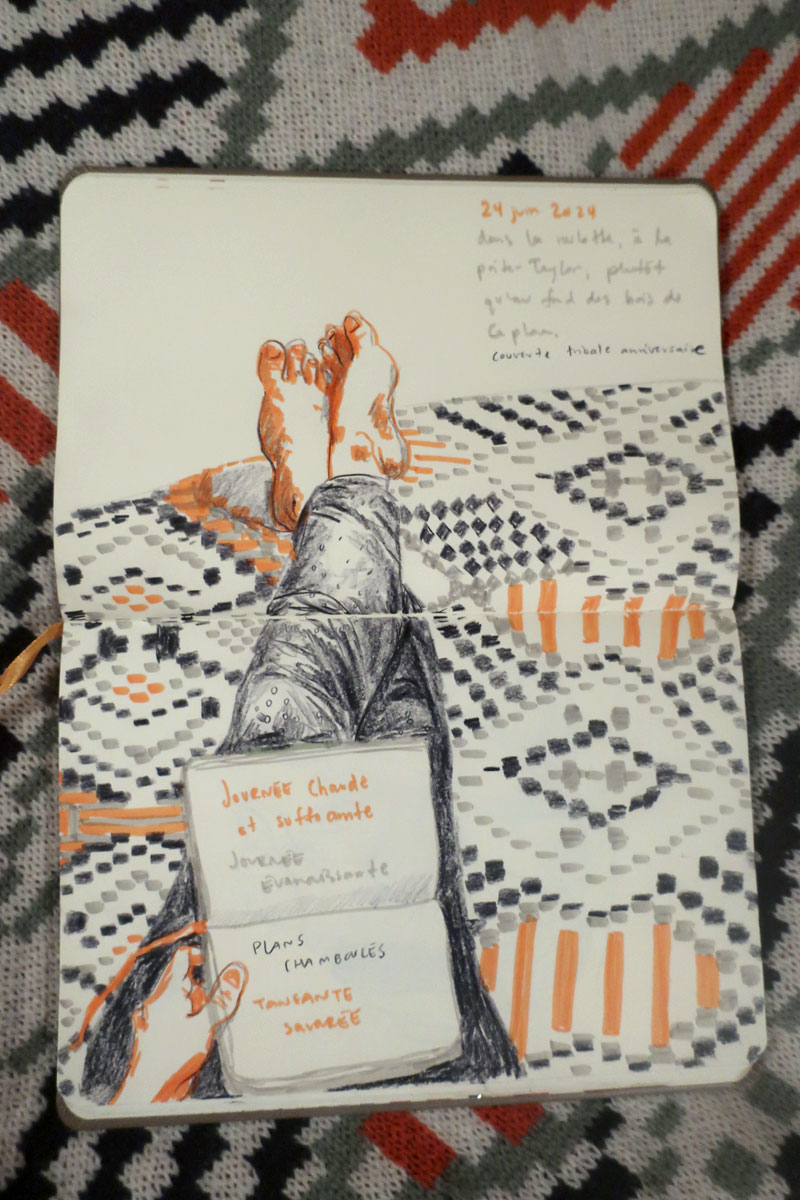 24 juin 2024
dans la roulotte, à la
pointe Taylor, plutôt
qu'au fond des bois de
Caplan.
couverte tribale anniversaire
JOURNÉE Chaude
et suffocante
JOURNÉE
évanaissante
PLANS
CHAMBOULÉS
TANFANTE
SAVARÉE